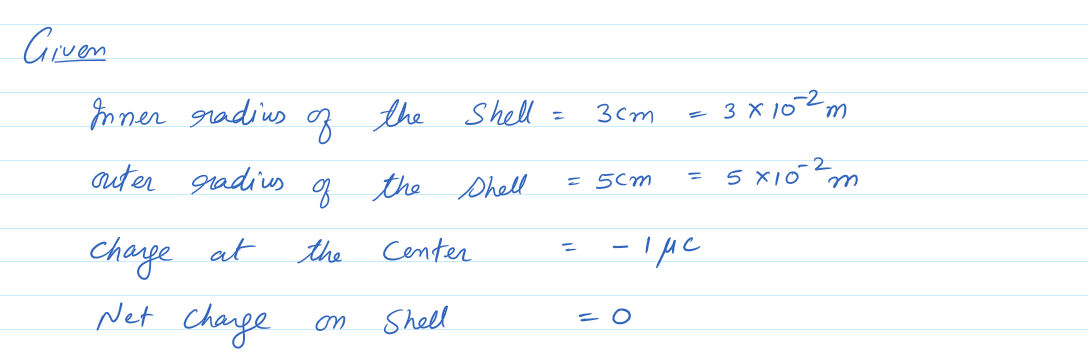 Given
Inner radius of the Shell = 3cm = 3 × 10⁻² m
outer radius of the Shell = 5cm = 5 × 10⁻² m
Charge at the Center = - 1 μC
Net Charge on Shell = 0